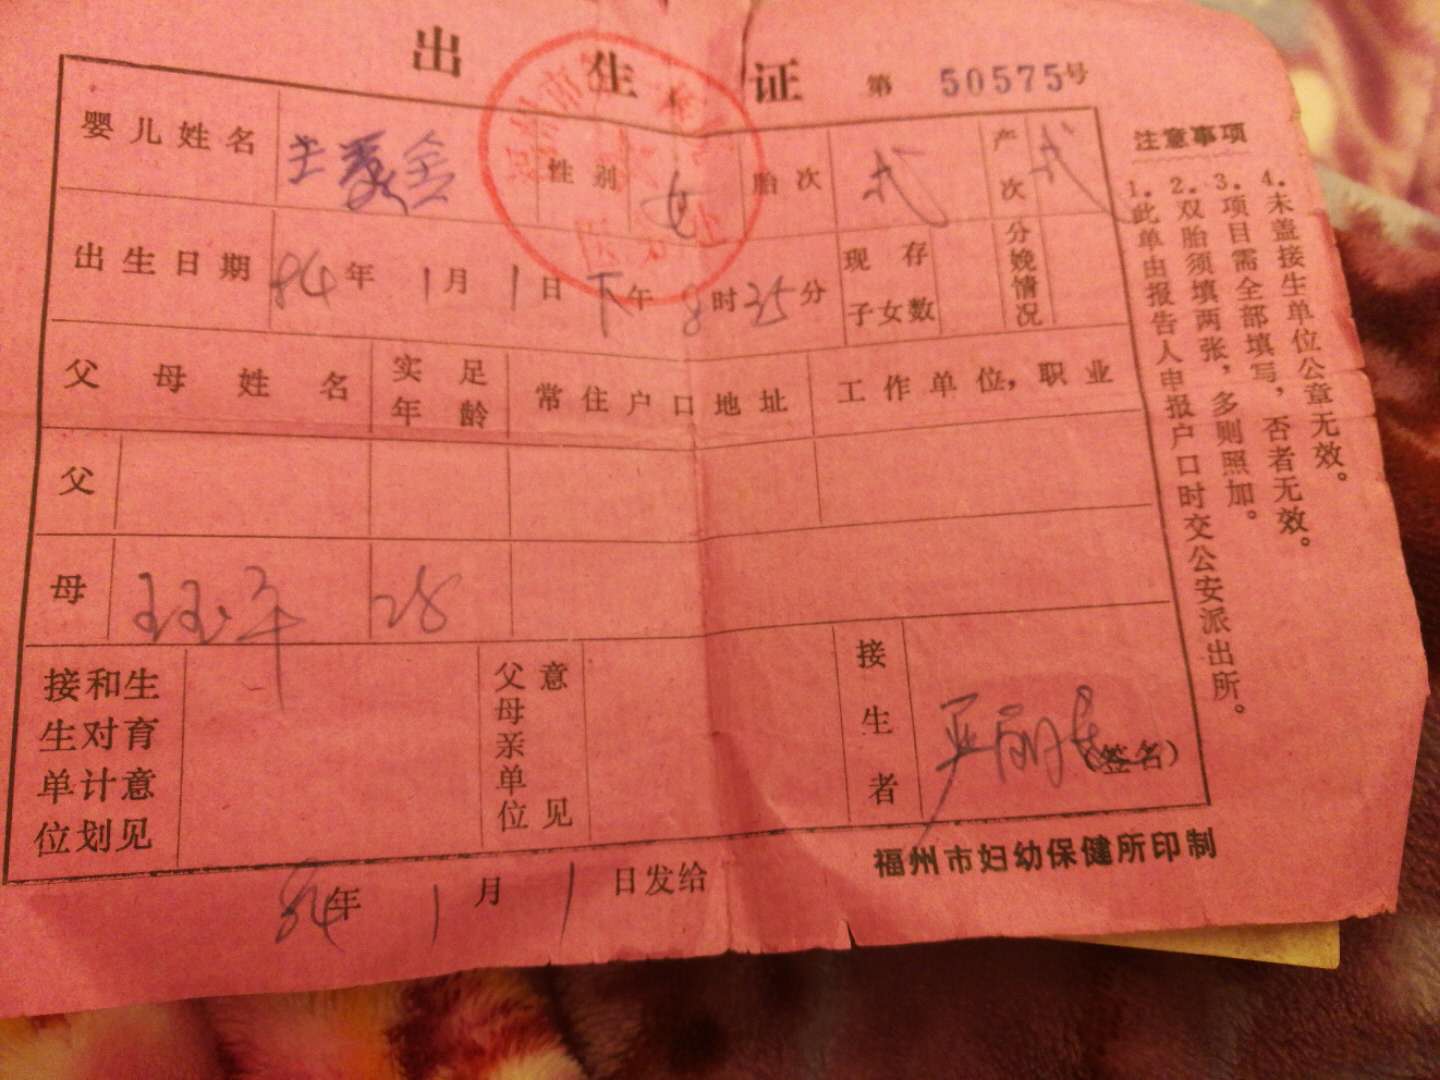 出生证 第 50575号
婴儿姓名 性别 女 胎次 弍 产次 弍
出生日期 84年 1月 1日 下午 8时35分 现存子女数 分娩情况
父母姓名 实足年龄 常住户口地址 工作单位，职业
父
母 28
接生单位和对计划生育意见 父母亲单位意见 接生者 (签名)
84年 1月 1日发给
福州市妇幼保健所印制
注意事项
1. 此单由报告人申报户口时交公安派出所。
2. 双胎须填两张，多则照加。
3. 项目需全部填写，否者无效。
4. 未盖接生单位公章无效。